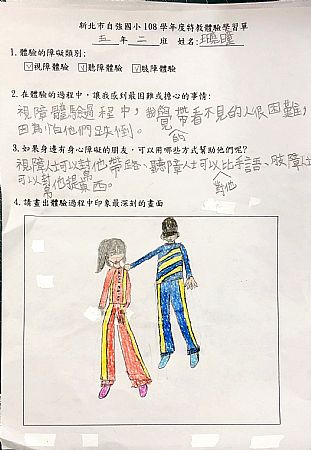 新北市自強國小108學年度特教體驗學習單
五年二班 姓名:
1.體驗的障礙類別:
☑視障體驗 ☑聽障體驗 ☑肢障體驗
2.在體驗的過程中,讓我感到最困難或擔心的事情:
視障體驗過程中,我覺帶看不見的人很困難,
因為怕他們跌倒。 的
3.如果身邊有身心障礙的朋友,可以用哪些方式幫助他們呢?
視障人士可以幫他帶路、聽障人士可以比手語、肢障人士
可以幫他提東西。 對他
4.請畫出體驗過程中印象最深刻的畫面